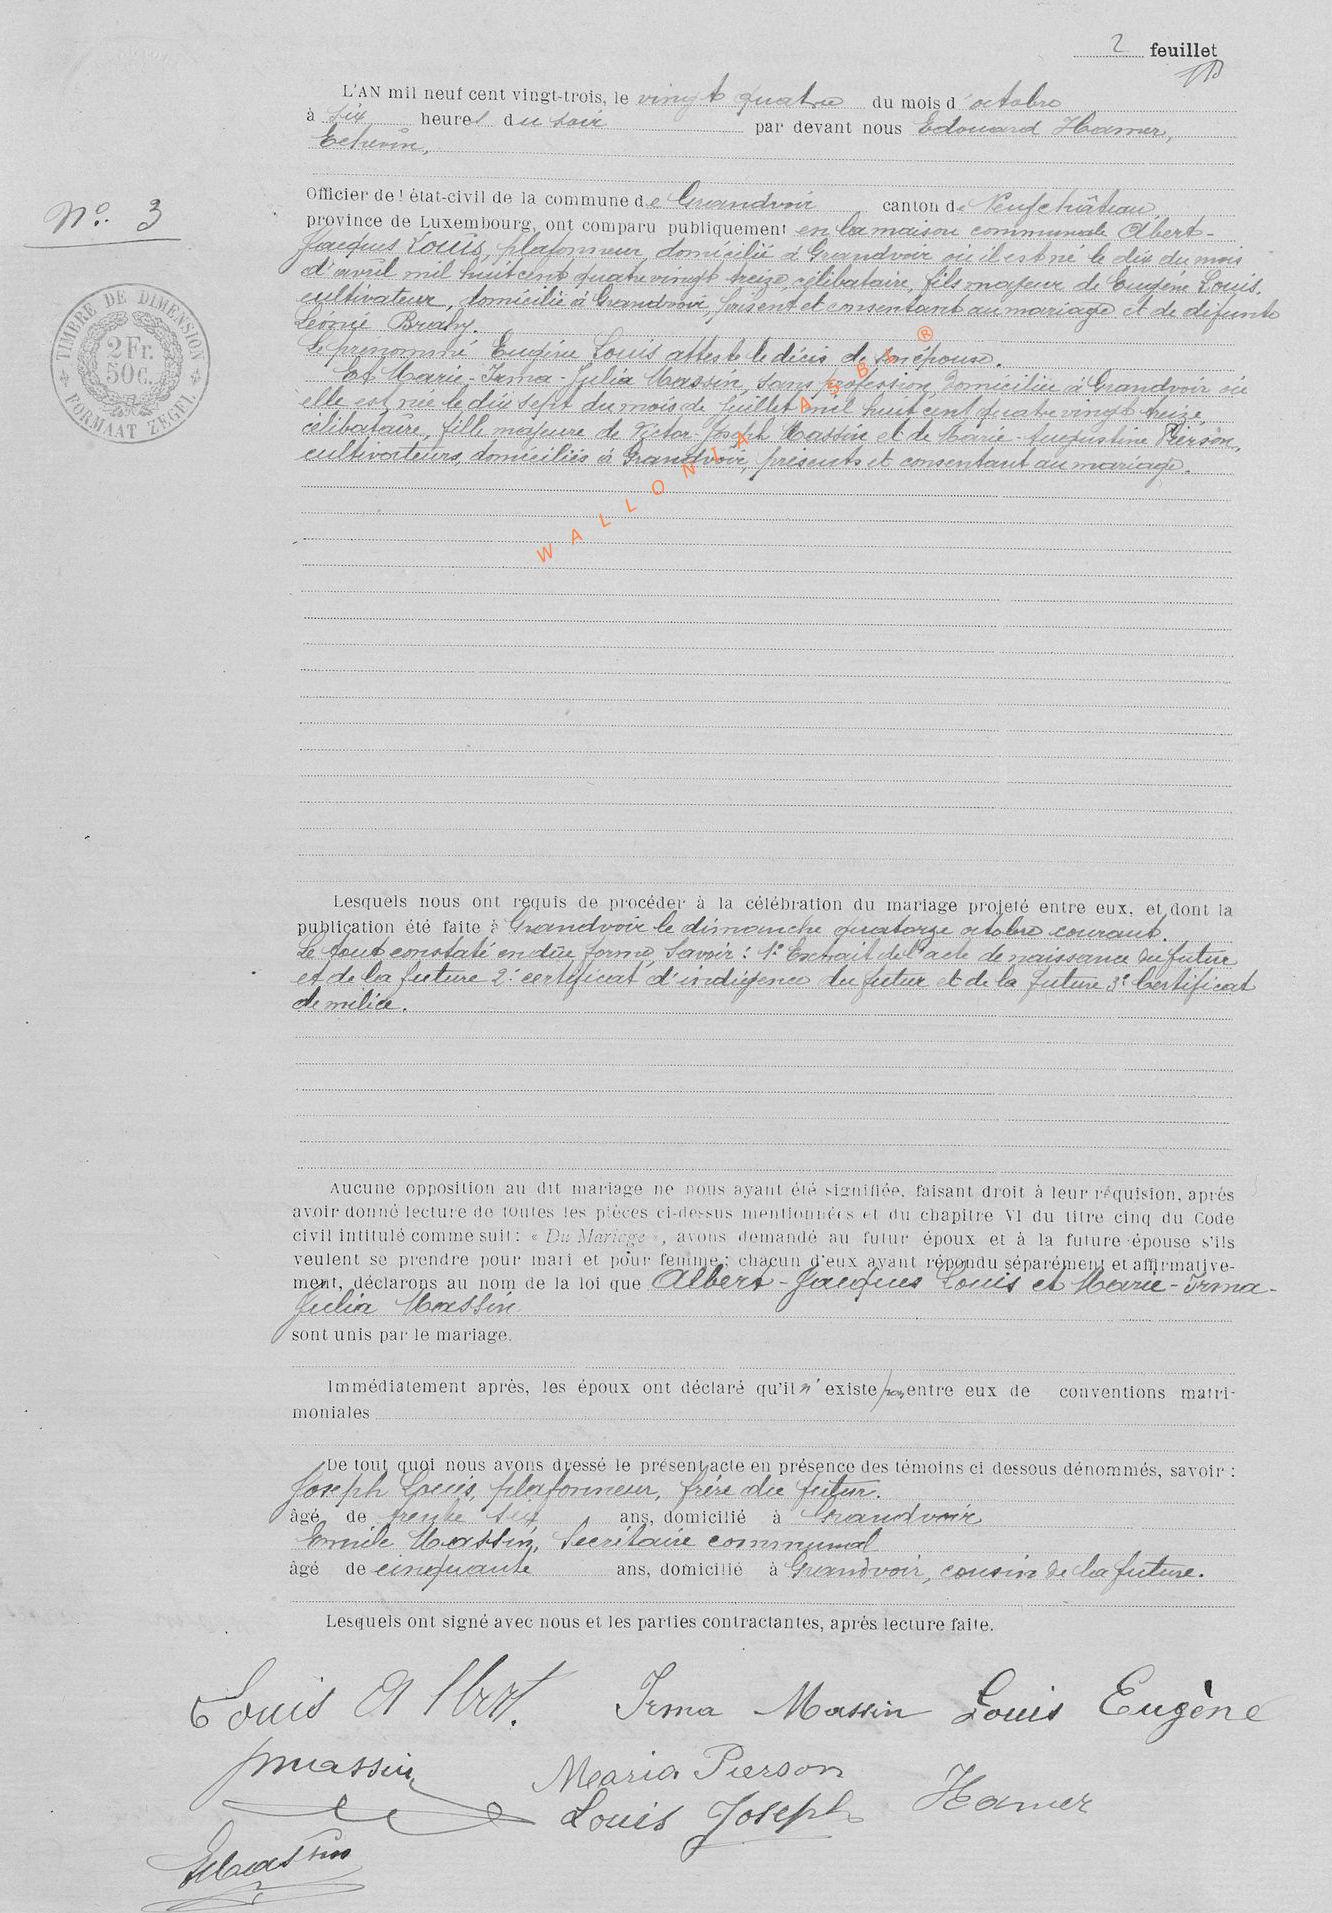 2 feuillet
L'AN mil neuf cent vingt-trois, le vingt quatre du mois d'octobre
à six heures du soir par devant nous Edouard Hamer,
Echevin,
Officier de l état-civil de la commune de Grandvoir canton de Neufchâteau,
province de Luxembourg, ont comparu publiquement en la maison communale Albert-
Jacques Louis, plafonneur, domicilié à Grandvoir où il est né le dix du mois
d'avril mil huit cent quatre vingt treize, célibataire, fils majeur de Eugène Louis,
cultivateur, domicilié à Grandvoir, présent et consentant au mariage et de défunte
Léonie Brahy.
Le prénommé Eugène Louis atteste le décès de son épouse.
Et Marie-Irma-Julia Massin, sans profession, domiciliée à Grandvoir où
elle est née le dix sept du mois de juillet mil huit cent quatre vingt treize
célibataire, fille majeure de Victor-Joseph Massin et de Marie-Augustine Pierson,
cultivateurs, domiciliés à Grandvoir, présents et consentant au mariage.
No. 3
TIMBRE DE DIMENSION
2 Fr.
50 c.
FORMAAT ZEGEL
WALLONIA ASBL ®
Lesquels nous ont requis de procéder à la célébration du mariage projeté entre eux, et dont la
publication été faite à Grandvoir le dimanche quatorze octobre courant.
Le tout constaté en dûe forme, Savoir: 1° Extrait de l'acte de naissance du futur
et de la future 2° certificat d'indigence du futur et de la future 3° Certificat
de milice.
Aucune opposition au dit mariage ne nous ayant été signifiée, faisant droit à leur réquision, après
avoir donné lecture de toutes les pièces ci-dessus mentionnées et du chapitre VI du titre cinq du Code
civil intitulé comme suit: « Du Mariage », avons demandé au futur époux et à la future épouse s'ils
veulent se prendre pour mari et pour femme; chacun d'eux ayant répondu séparément et affirmative-
ment, déclarons au nom de la loi que Albert-Jacques Louis et Marie-Irma-
Julia Massin
sont unis par le mariage.
Immédiatement après, les époux ont déclaré qu'il n'existe pas entre eux de conventions matri-
moniales
De tout quoi nous avons dressé le présent acte en présence des témoins ci dessous dénommés, savoir :
Joseph Louis, plafonneur, frère du futur.
âgé de trente six ans, domicilié à Grandvoir
Emile Massin, Secrétaire communal
âgé de cinquante ans, domicilié à Grandvoir, cousin de la future.
Lesquels ont signé avec nous et les parties contractantes, après lecture faite.
Louis Albert. Irma Massin Louis Eugène
Massin Maria Pierson
Louis Joseph Hamer
EMassin